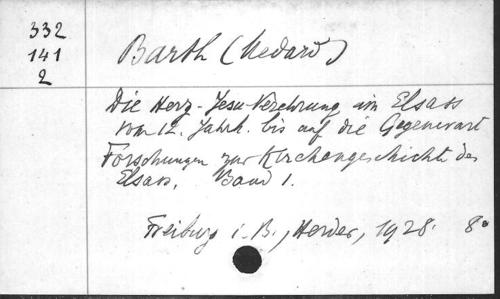 332
141
2
Barth (Medard)
Die Herz-Jesu-Verehrung im Elsass
vom 12. Jahrh. bis auf die Gegenwart
Forschungen zur Kirchengeschichte des
Elsass, Band 1.
Freiburg i. B., Herder, 1928. 8°